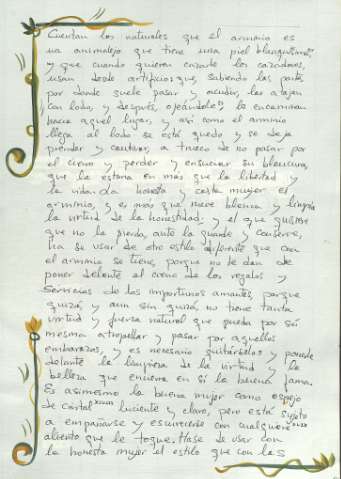 Cuentan los naturales que el arminio es
un animalejo que tiene una piel blanquísima
y que cuando quieren cazarle los cazadores,
usan deste artificio: que, sabiendo las partes
por donde suele pasar y acudir, las atajan
con lodo, y después, ojeándole, le encaminan
hacia aquel lugar, y así como el arminio
llega al lodo se está quedo y se deja
prender y cautivar, a trueco de no pasar por
el cieno y perder y ensuciar su blancura,
que la estima en más que la libertad y
la vida. La honesta y casta mujer es
arminio, y es más que nieve blanca y limpia
la virtud de la honestidad; y el que quisiere
que no la pierda, antes la guarde y conserve,
ha de usar de otro estilo diferente que con
el arminio se tiene, porque no le han de
poner delante el cieno de los regalos y
servicios de los importunos amantes, porque
quizá, y aun sin quizá, no tiene tanta
virtud y fuerza natural que pueda por sí
mesma atropellar y pasar por aquellos
embarazos, y es necesario quitárselos y ponerle
delante la limpieza de la virtud y la
belleza que encierra en sí la buena fama.
Es asimesmo la buena mujer como espejo
de cristal luciente y claro, pero está sujeto
a empañarse y escurecerse con cualquiera
aliento que le toque. Hase de usar con
la honesta mujer el estilo que con las